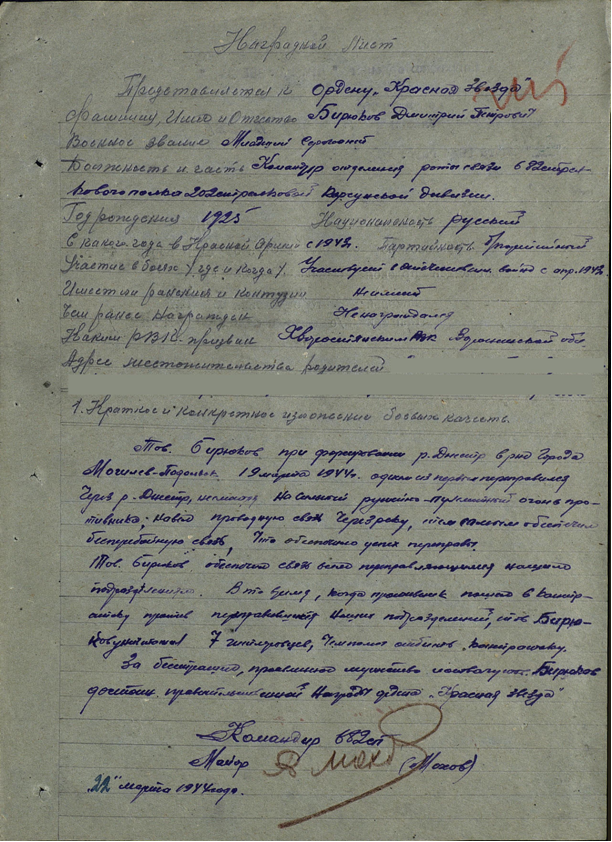 Наградной Лист
Представляется к ордену „Красная Звезда"
Фамилия, Имя и Отчество Бирюков Дмитрий Петрович
Военное звание Младший Сержант
Должность и часть Командир отделения роты связи 682 стрел-
кового полка 202 стрелковой Корсунской дивизии.
Год рождения 1925 Национальность русский
С какого года в Красной Армии с 1943г. Партийность б/партийный
Участие в боях /где и когда/. Участвует в отечественн. войне с апр. 1943г.
Имеет ли ранения и контузии не имеет
Чем ранее награжден Ненаграждался
Каким РВК призван Хворостянским РВК Воронежской обл.
Адрес местожительства родителей
1. Краткое и конкретное изложение боевых качеств.
Тов. Бирюков при форсировании р. Днестр в р-не города
Могилев-Подольск 19 марта 1944г. один из первых переправился
через р. Днестр, несмотря на сильный ружейно-пулеметный огонь про-
тивника, навел проводную связь через реку, тем самым обеспечил
бесперебойную связь, что обеспечило успех переправы.
Тов. Бирюков обеспечил связь переправляющимся нашим
подразделениям. В то время, когда противник пошел в контр-
атаку против переправившихся наших подразделений, тов. Бирю-
ков уничтожил 7 гитлеровцев, чем помог отбить контратаку.
За бесстрашие, проявленное мужество и отвагу тов. Бирюков
достоин правительственной награды ордена „Красная звезда"
Командир 682 сп
Майор (Мохов)
„22" марта 1944 года.